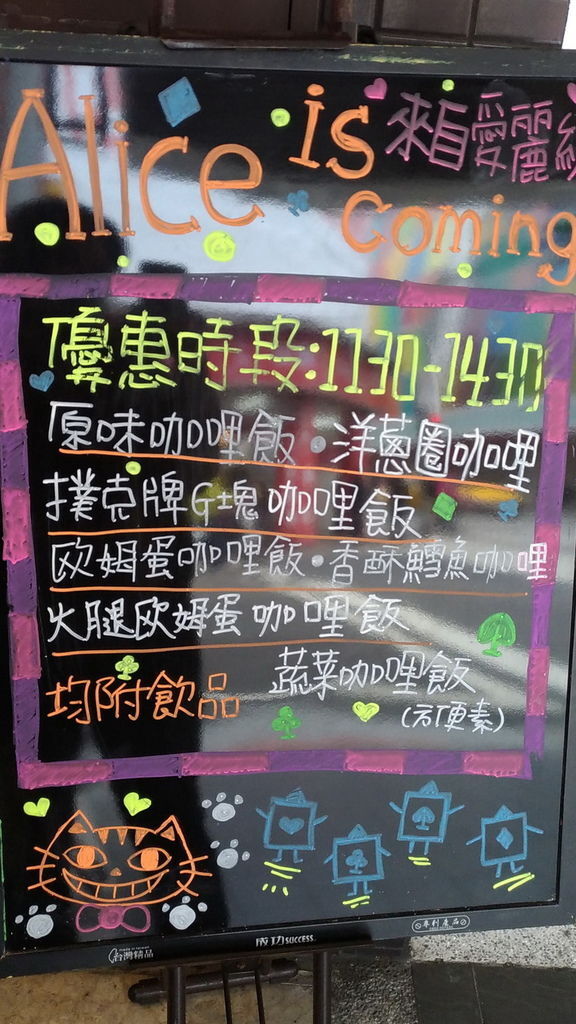 Alice is
來自愛麗絲
coming
優惠時段:1130-1430
原味咖哩飯・洋蔥圈咖哩
撲克牌G塊咖哩飯
欧姆蛋咖哩飯・香酥鱈魚咖哩
火腿欧姆蛋咖哩飯
蔬菜咖哩飯
均附飲品
(方便素)
made in taiwan
台灣精品
成功SUCCESS
專利產品